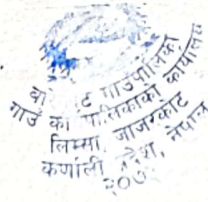 गाउँपालिका
गाउँ कार्यपालिकाको कार्यालय
लिम्सा, जाजरकोट
कर्णाली प्रदेश, नेपाल